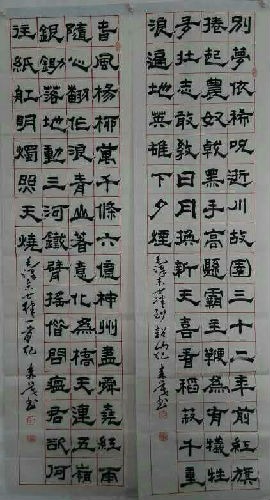 別夢依稀咒逝川故園三十二年前紅旗
捲起農奴戟黑手高縣霸主鞭為有犧牲
多壯志敢教日月換新天喜看稻菽千重
浪遍地英雄下夕煙
毛澤東七律到韶山記
書
春風楊柳萬千條六億神州盡舜堯紅雨
隨心翻作浪青山著意化為橋天連五嶺
銀鋤落地動三河鐵臂搖借問瘟君欲何
往紙船明燭照天燒
毛澤東七律一首記
書